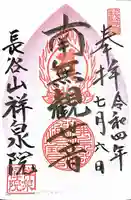 奉拝 令和四年
七月六日
南無観世音
長谷山祥泉院